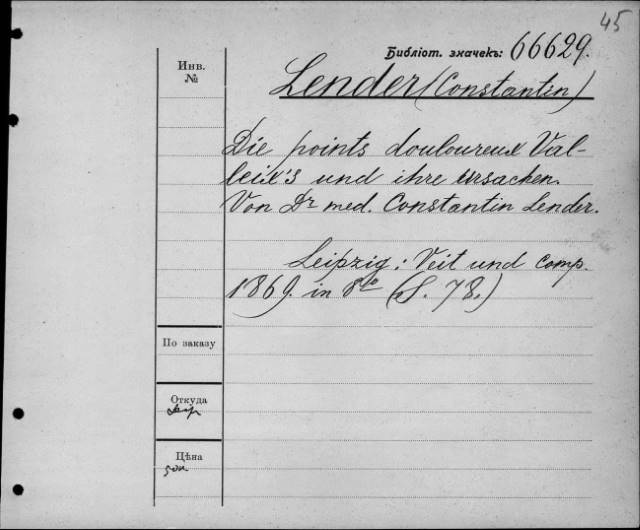 45
Библіот. значекъ: 66629.
Инв.
№
Lender (Constantin)
Die points douloureux Val-
leix's und ihre ursachen.
Von Dr med. Constantin Lender.
Leipzig: Veit und Comp.
1869. in 8to (S. 78.)
По заказу
Откуда
Цѣна